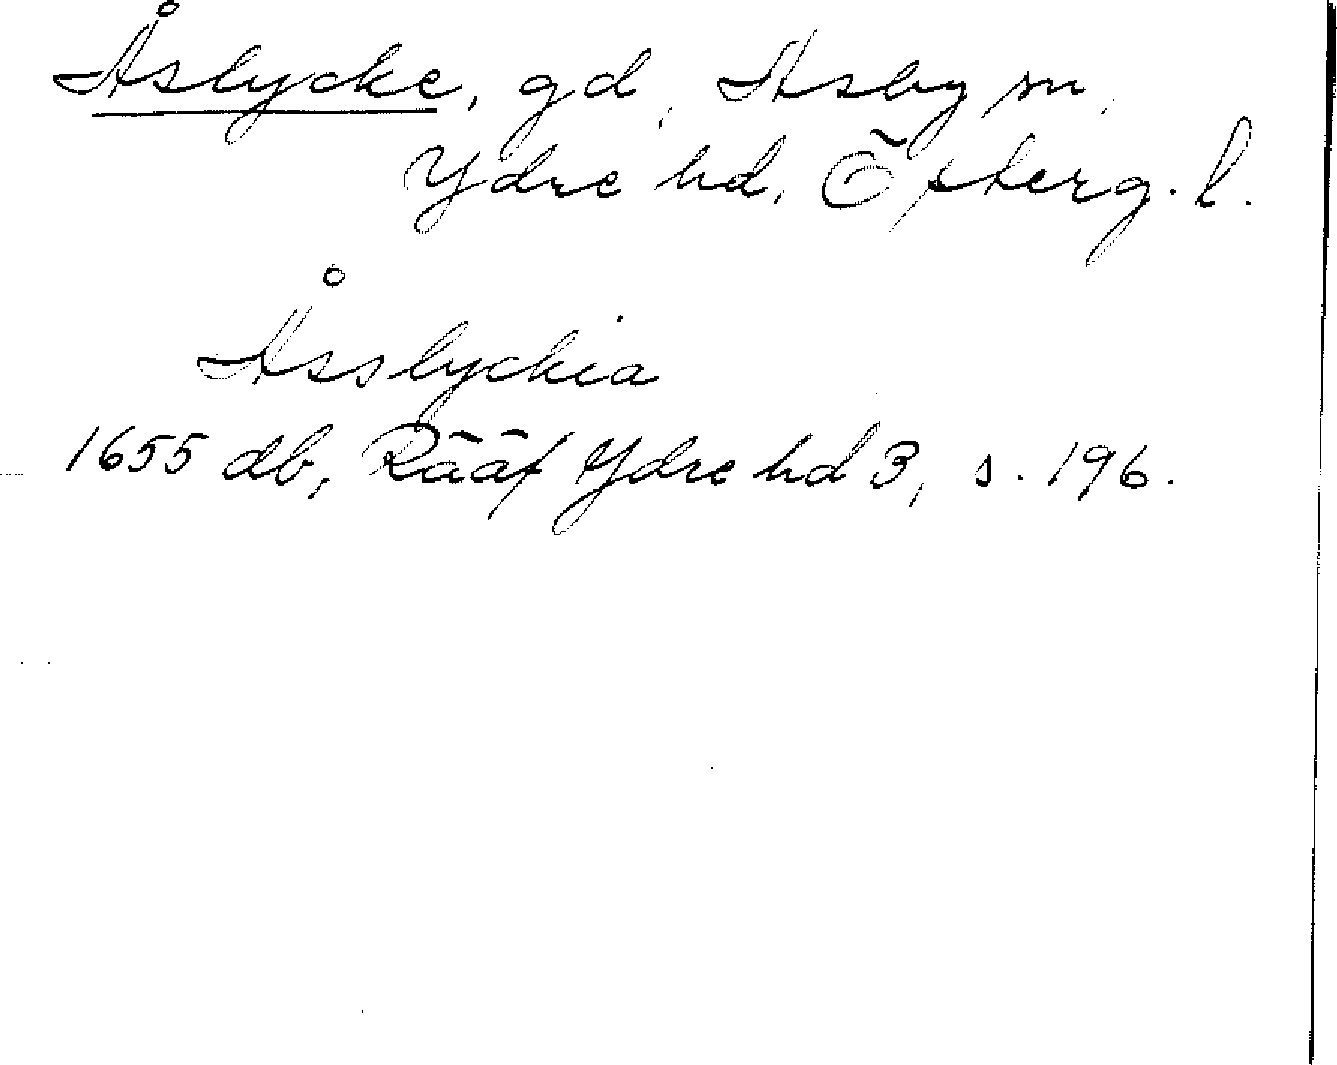 Åslycke, gd, Asby sn,
Ydre hd, Österg. l.
Åsslyckia
1655 db, Rääf Ydre hd 3, s. 196.